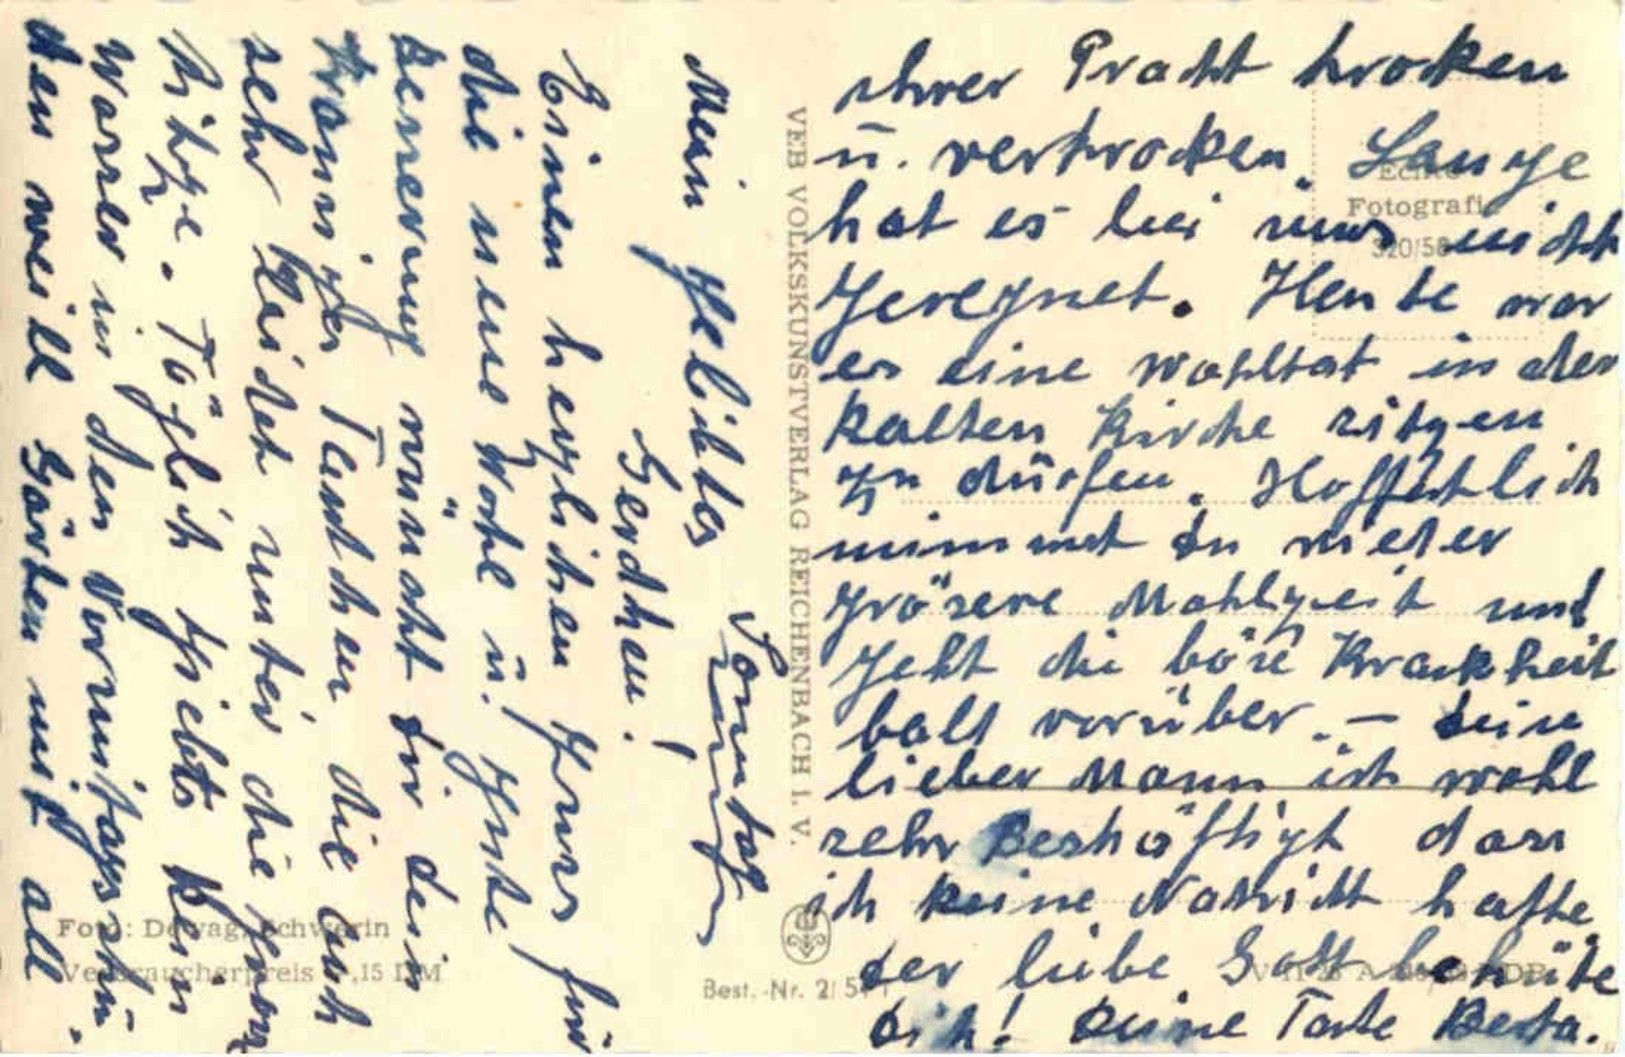 Sonntag
Mein gelibtes
Gerdchen!
Einen herzlichen Grus für
die neue Woche u. Gute
Beserung wünscht dir dein
Tantchen die auch
sehr leidet unter die
Hitze. Täglich giebts kein
Wasser in den Vormittagsstu.
den weill Gärten mit all
ihrer Pracht troken
u. vertroken. Lange
hat es bei uns nicht
geregnet. Heute war
es eine wohltat in der
kalten Kirche sitzen
zu dürfen. Hoffentlich
nimmst du wieder
grösere Mahlzeit und
geht die böse Krankheit
bald vorüber. – Dein
lieber Mann ist wohl
sehr Beshäftigt das
ich keine Nahricht hatte
der liebe Gott behüte
Dich! Deine Tante Berta.
VEB VOLKSKUNSTVERLAG REICHENBACH i. V.
Echte
Fotografie
320/58
Foto: Dewag, Schwerin
Verbraucherpreis -,15 DM
Best.-Nr. 2/